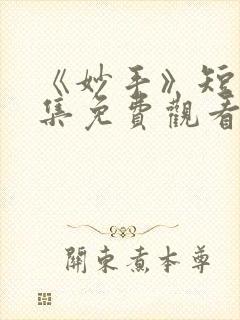 《妙手》短
集免費觀看
關東煮本尊